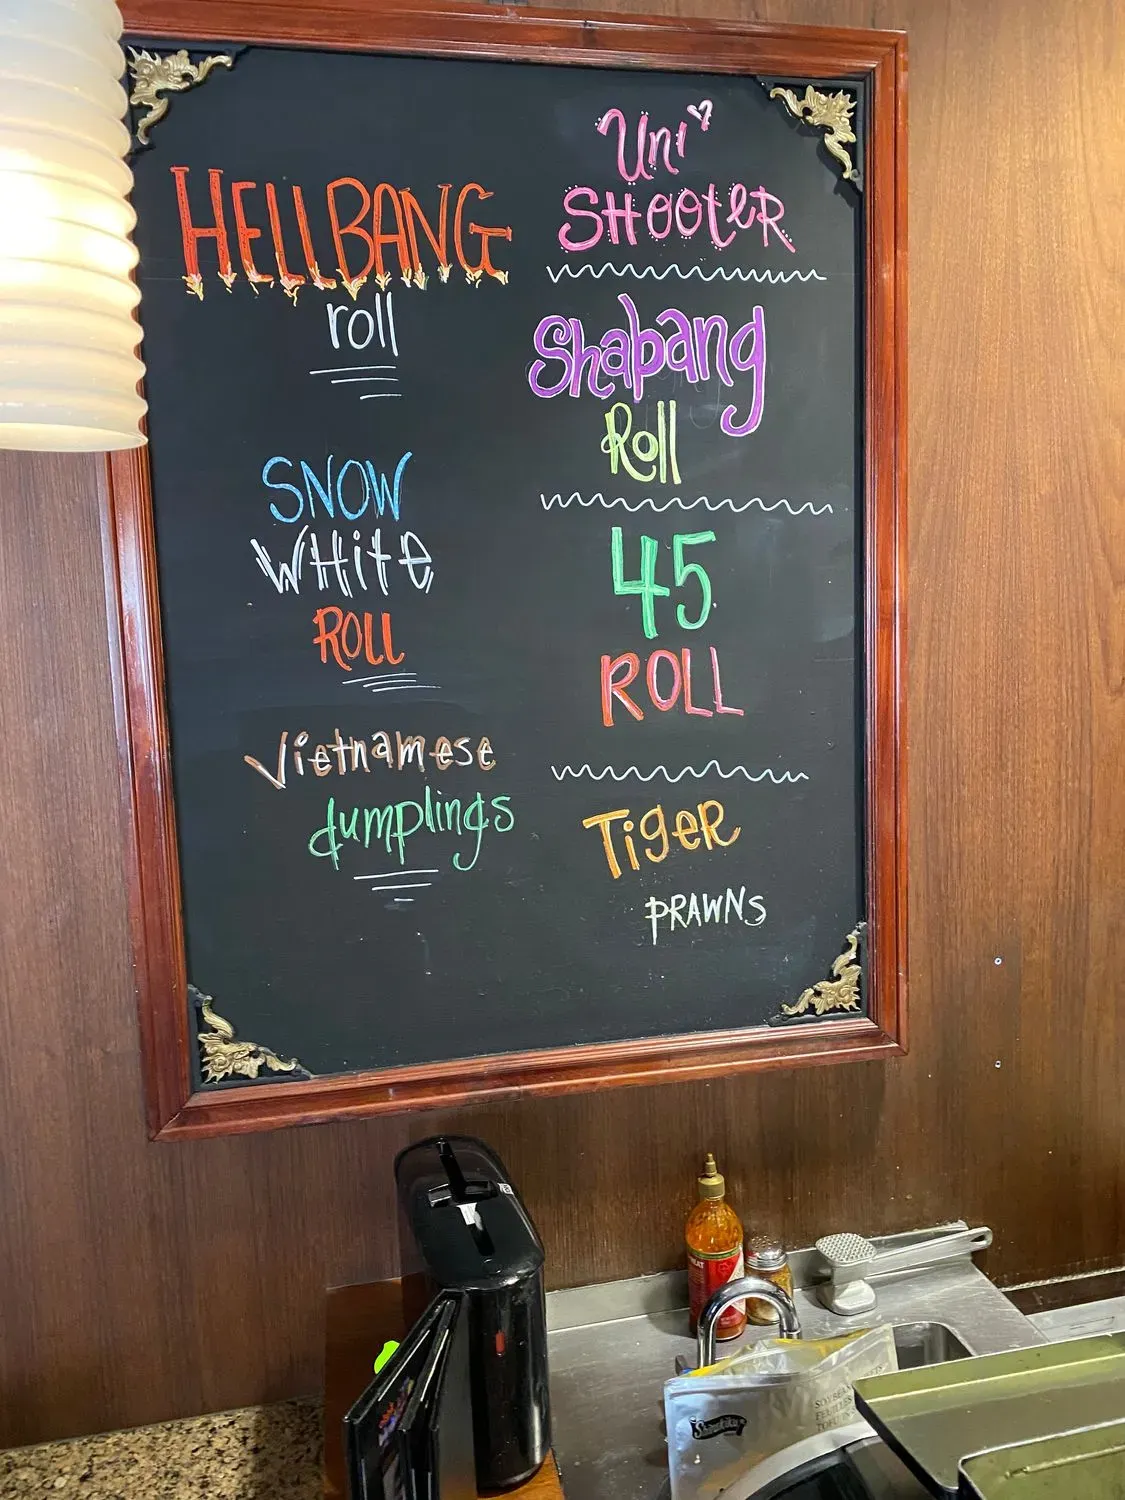 HELLBANG
roll
SNOW
WHite
ROLL
Vietnamese
dumplings
Uni
SHOOteR
Shabang
Roll
45
ROLL
TigeR
PRAWNS
SOYBEAN